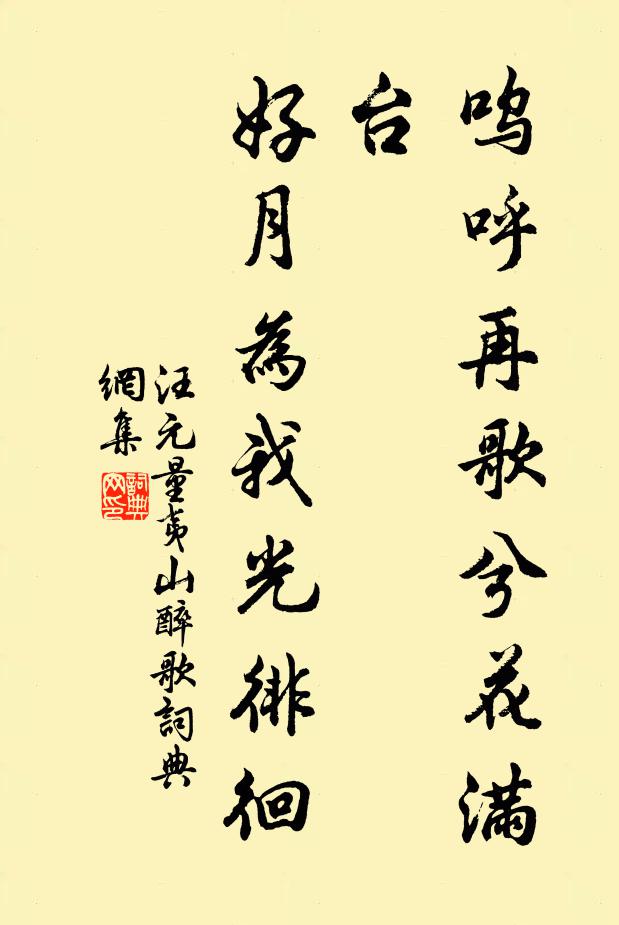 呜呼再歌兮花满
台
好月為我光徘徊
汪元量夷山醉歌詞典
網集
詞典网印